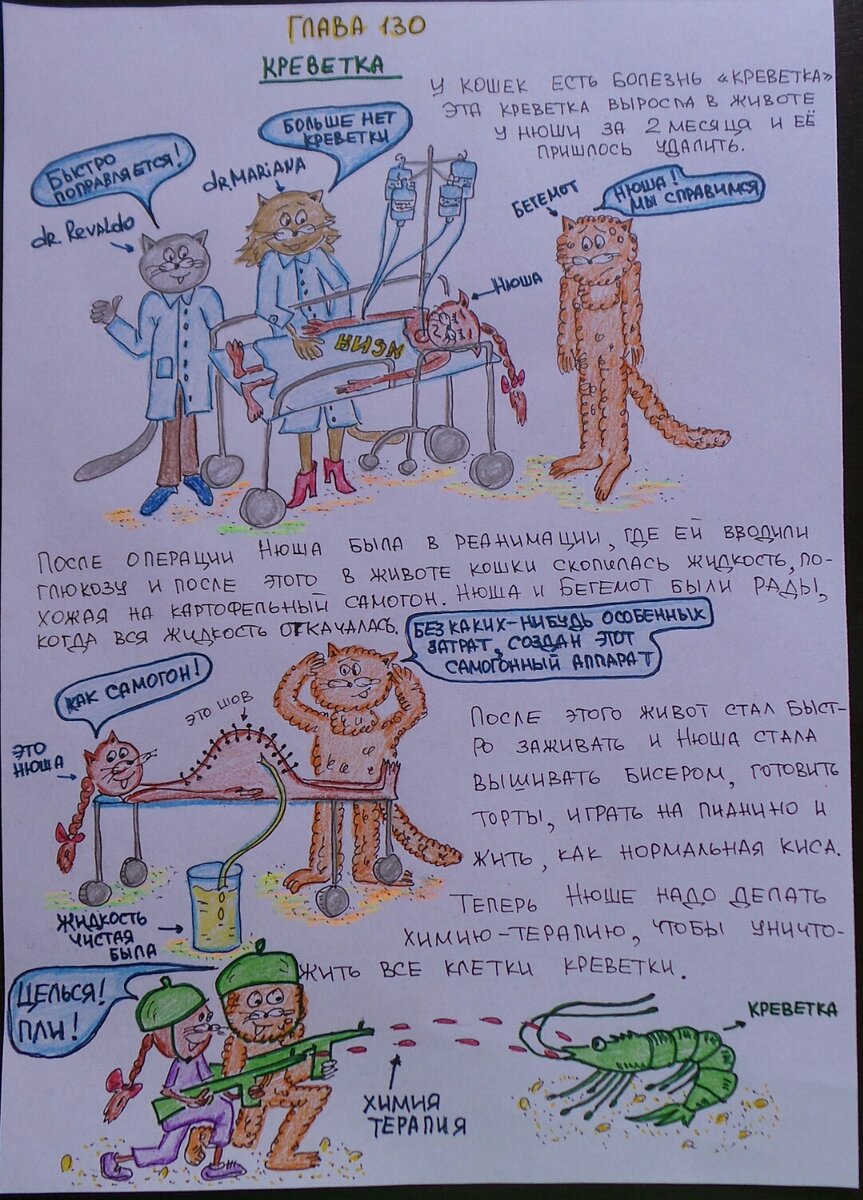 ГЛАВА 130
КРЕВЕТКА
У КОШЕК ЕСТЬ БОЛЕЗНЬ «КРЕВЕТКА»
ЭТА КРЕВЕТКА ВЫРОСЛА В ЖИВОТЕ
У НЮШИ ЗА 2 МЕСЯЦА И ЕЁ
ПРИШЛОСЬ УДАЛИТЬ.
БЫСТРО
ПОПРАВЛЯЕТСЯ!
dr. REVALDO
БОЛЬШЕ НЕТ
КРЕВЕТКИ
dr. MARIANA
НЮША
НИЗМ
БЕГЕМОТ
НЮША!
МЫ СПРАВИМСЯ
ПОСЛЕ ОПЕРАЦИИ НЮША БЫЛА В РЕАНИМАЦИИ, ГДЕ ЕЙ ВВОДИЛИ
ГЛЮКОЗУ И ПОСЛЕ ЭТОГО В ЖИВОТЕ КОШКИ СКОПИЛАСЬ ЖИДКОСТЬ, ПО-
ХОЖАЯ НА КАРТОФЕЛЬНЫЙ САМОГОН. НЮША И БЕГЕМОТ БЫЛИ РАДЫ,
КОГДА ВСЯ ЖИДКОСТЬ ОТКАЧАЛАСЬ.
БЕЗ КАКИХ-НИБУДЬ ОСОБЕННЫХ
ЗАТРАТ, СОЗДАН ЭТОТ
САМОГОННЫЙ АППАРАТ
КАК САМОГОН!
ЭТО ШОВ
ЭТО
НЮША
ЖИДКОСТЬ
ЧИСТАЯ
БЫЛА
ПОСЛЕ ЭТОГО ЖИВОТ СТАЛ БЫСТ-
РО ЗАЖИВАТЬ И НЮША СТАЛА
ВЫШИВАТЬ БИСЕРОМ, ГОТОВИТЬ
ТОРТЫ, ИГРАТЬ НА ПИАНИНО И
ЖИТЬ, КАК НОРМАЛЬНАЯ КИСА.
ТЕПЕРЬ НЮШЕ НАДО ДЕЛАТЬ
ХИМИЮ-ТЕРАПИЮ, ЧТОБЫ УНИЧТО-
ЖИТЬ ВСЕ КЛЕТКИ КРЕВЕТКИ.
ЦЕЛЬСЯ!
ПЛИ!
ХИМИЯ
ТЕРАПИЯ
КРЕВЕТКА